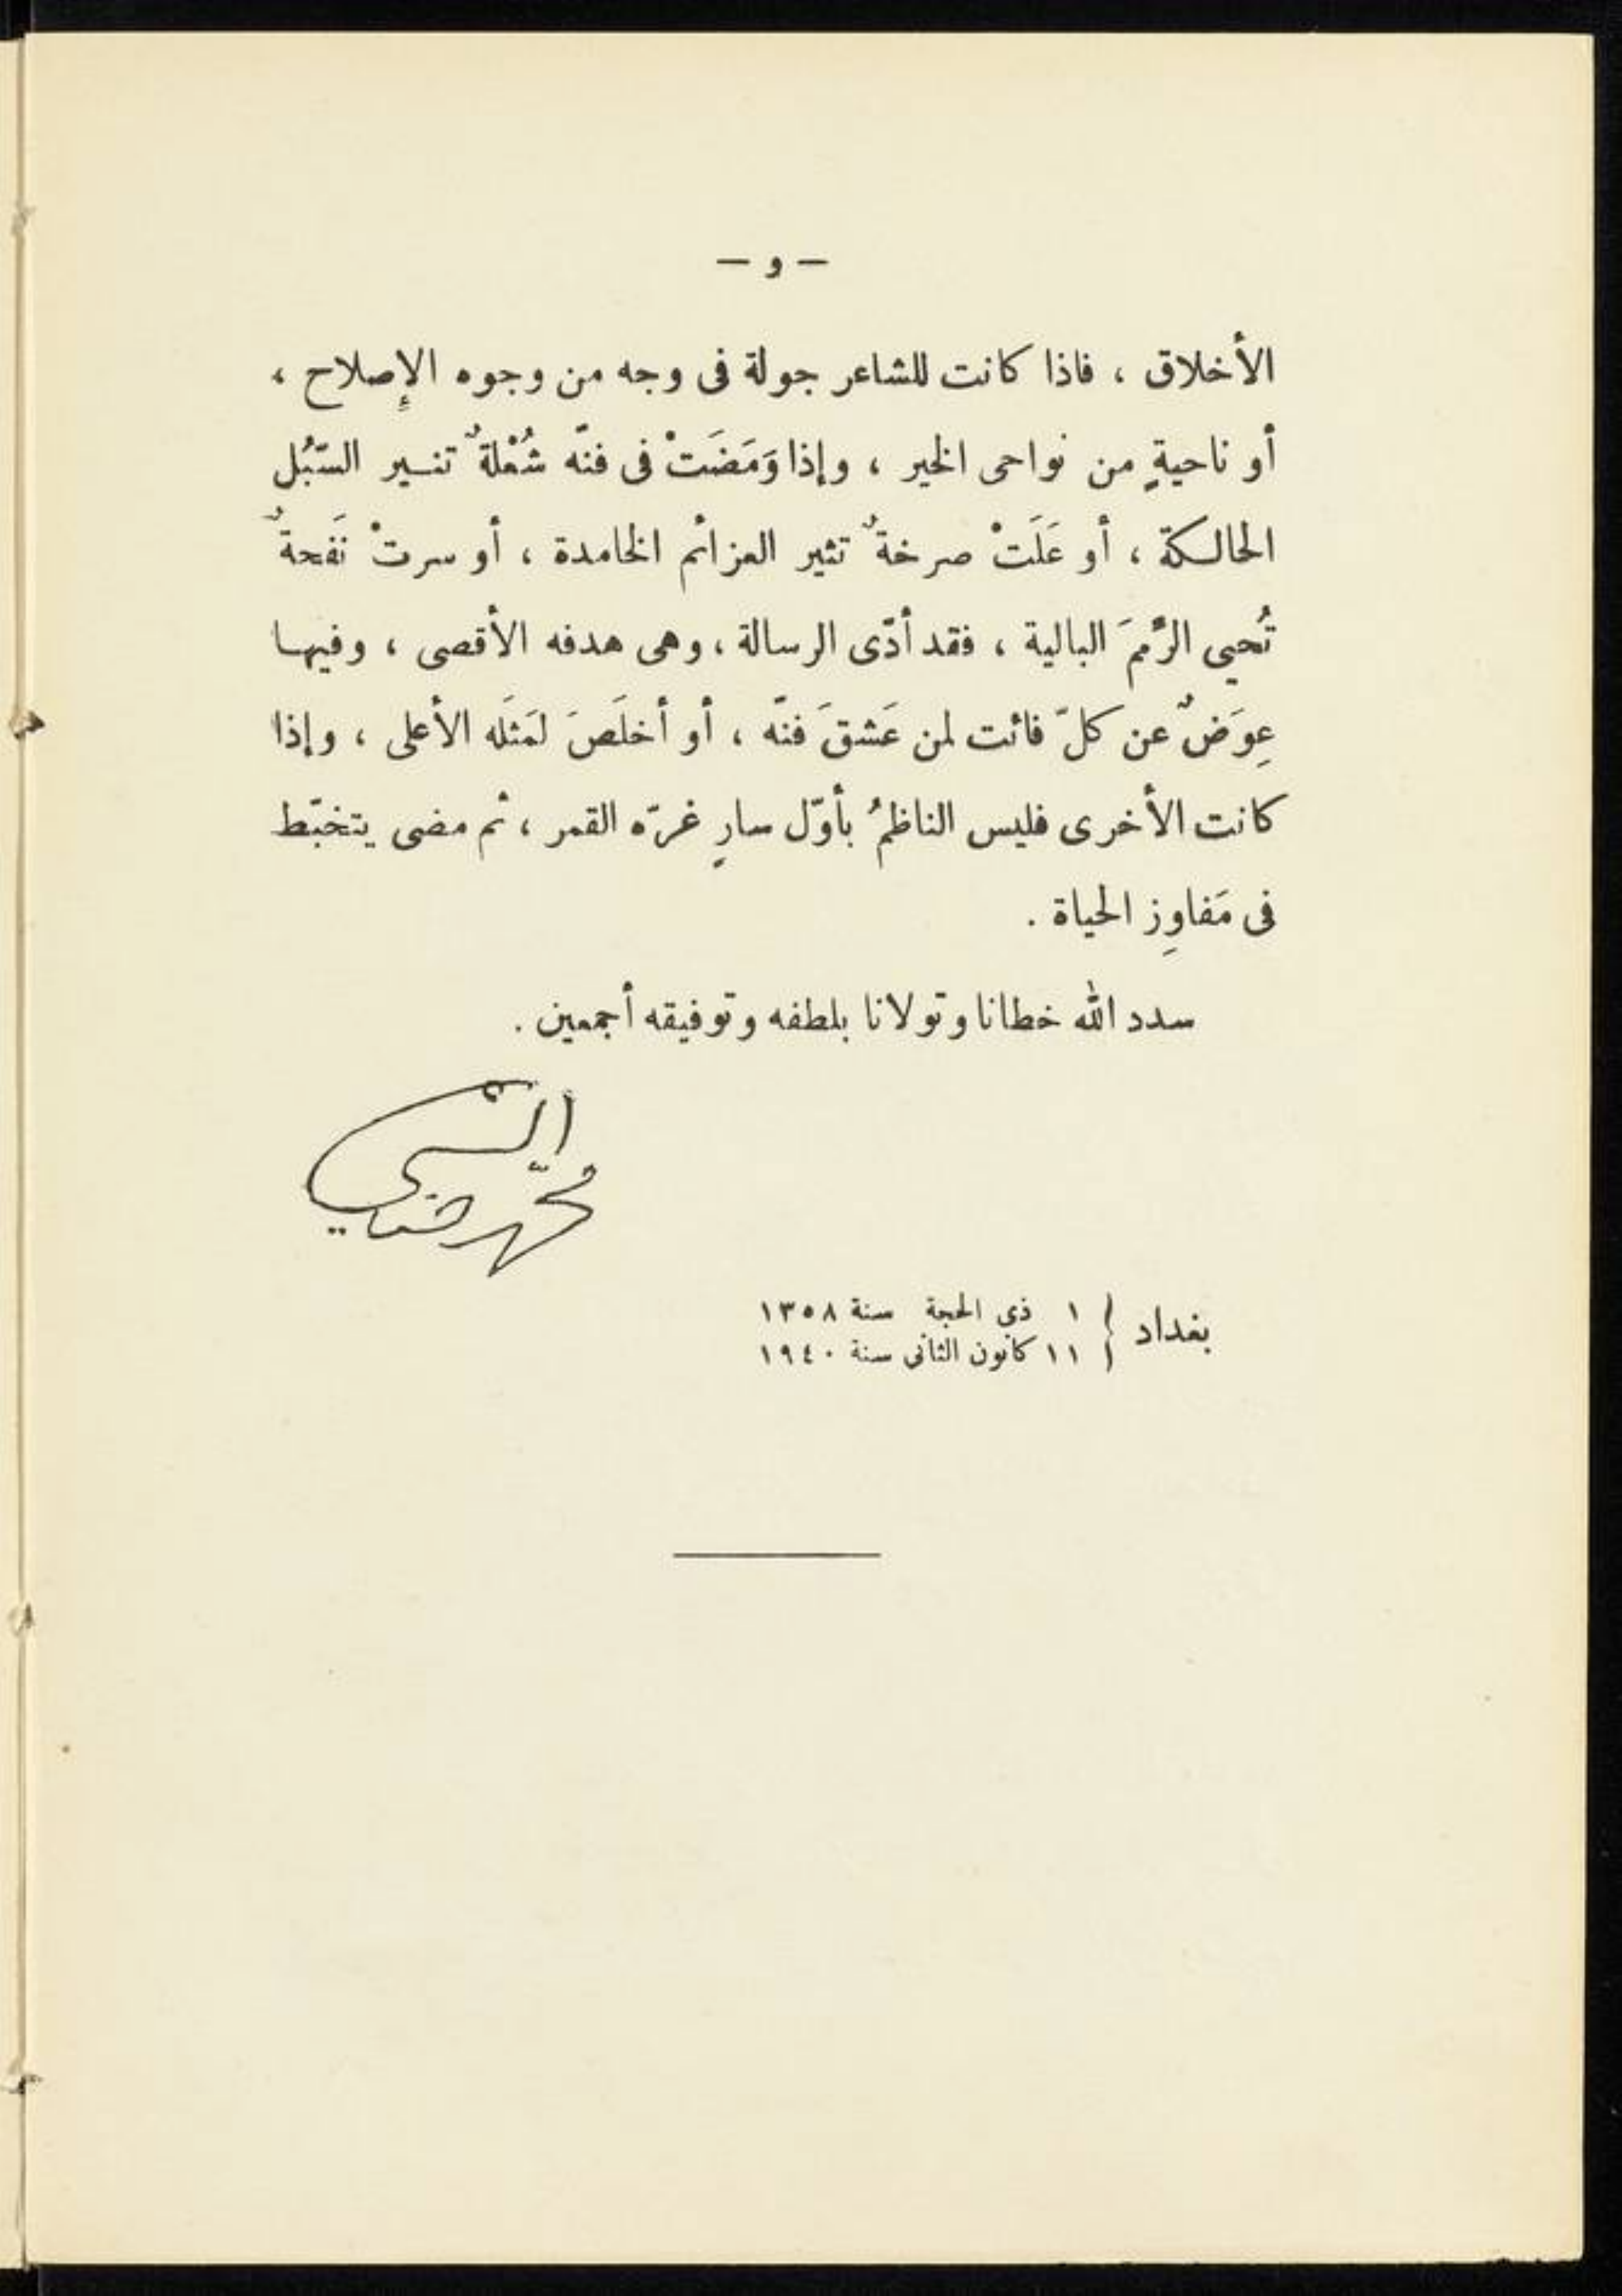 — و —
الأخلاق ، فاذا كانت للشاعر جولة فى وجه من وجوه الإِصلاح ،
أو ناحيةٍ من نواحى الخير ، وإذا وَمَضَتْ فى فنّه شُعْلةٌ تنسير السّبُل
الحالكة ، أو عَلَتْ صرخةٌ تثير العزائم الخامدة ، أو سرتْ نَفحةٌ
تُحيي الرِّممَ البالية ، فقد أدّى الرسالة ، وهى هدفه الأقصى ، وفيها
عِوَضٌ عن كلّ فائت لمن عَشقَ فنّه ، أو أخلَصَ لمَثَله الأعلى ، وإذا
كانت الأخرى فليس الناظمُ بأوّل سارٍ غرّه القمر ، ثم مضى يتخبّط
فى مَفاوِز الحياة .
سدد الله خطانا وتولانا بلطفه وتوفيقه أجمعين .
الشبيبي
محمد رضا
بغداد { ١ ذى الحجة سنة ١٣٥٨
١١ كانون الثانى سنة ١٩٤٠